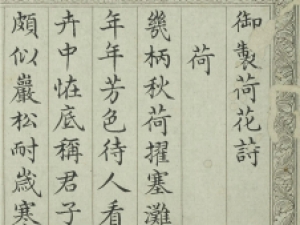 御製荷花詩
荷
幾柄秋荷擢塞灘
年年芳色待人看
卉中怪底稱君子
頗似巖松耐歲寒